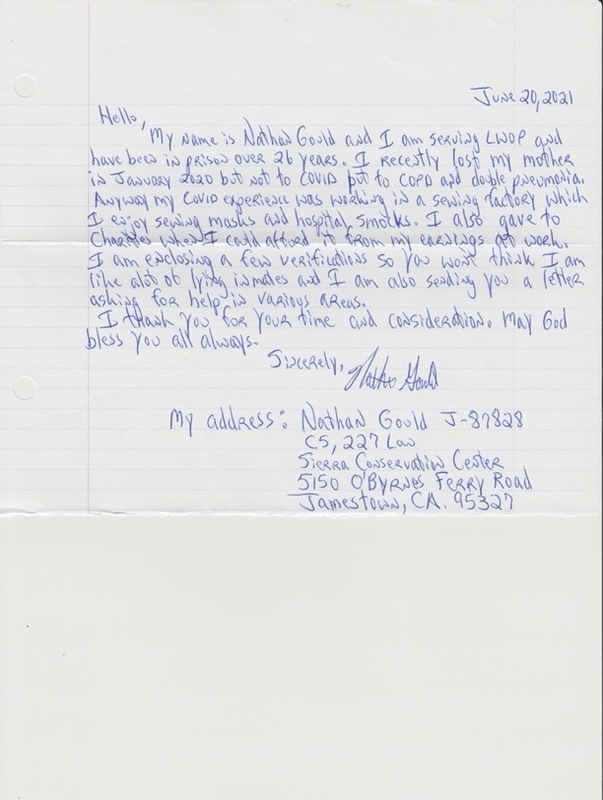 June 20, 2021
Hello,
My name is Nathan Gould and I am serving LWOP and
have been in prison over 26 years. I recently lost my mother
in January 2020 but not to COVID but to COPD and double pneumonia.
Anyway my COVID experience was working in a sewing factory which
I enjoy sewing masks and hospital smocks. I also gave to
Charities when I could afford it from my earnings at work.
I am enclosing a few verifications so you won't think I am
like alot of lying inmates and I am also sending you a letter
asking for help in various areas.
I thank you for your time and consideration. May God
bless you all always.
Sincerely, Nathan Gould
My address: Nathan Gould J-87828
C5, 227 Low
Sierra Conservation Center
5150 O'Byrnes Ferry Road
Jamestown, CA. 95327